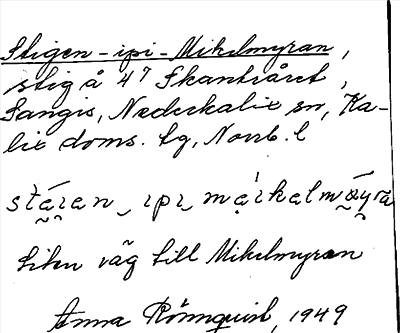 Stigen-ipi-Mikelmyran,
stig å 47 Skanträret,
Sangis, Nederkalix sn, Ka-
lix doms. tg, Norrb. l
liten väg till Mikelmyran
Anna Rönnquist, 1949